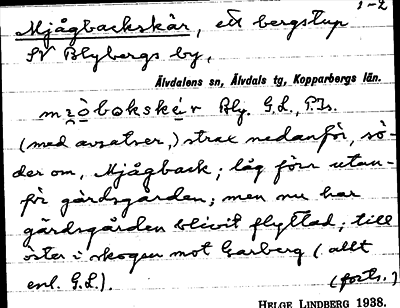 1-2
Mjågbackskär, ett bergstup
SV Blybergs by,
Älvdalens sn, Älvdals tg, Kopparbergs län.
Bly. G.L., P.Is.
(med avsatser,) strax nedanför, sö-
der om, Mjågback; låg förr utan-
för gårdsgården; men nu har
gärdsgården blivit flyttad; till
öster i skogen mot Garberg (allt
enl. G.L.).
(forts.)
HELGE LINDBERG 1938.